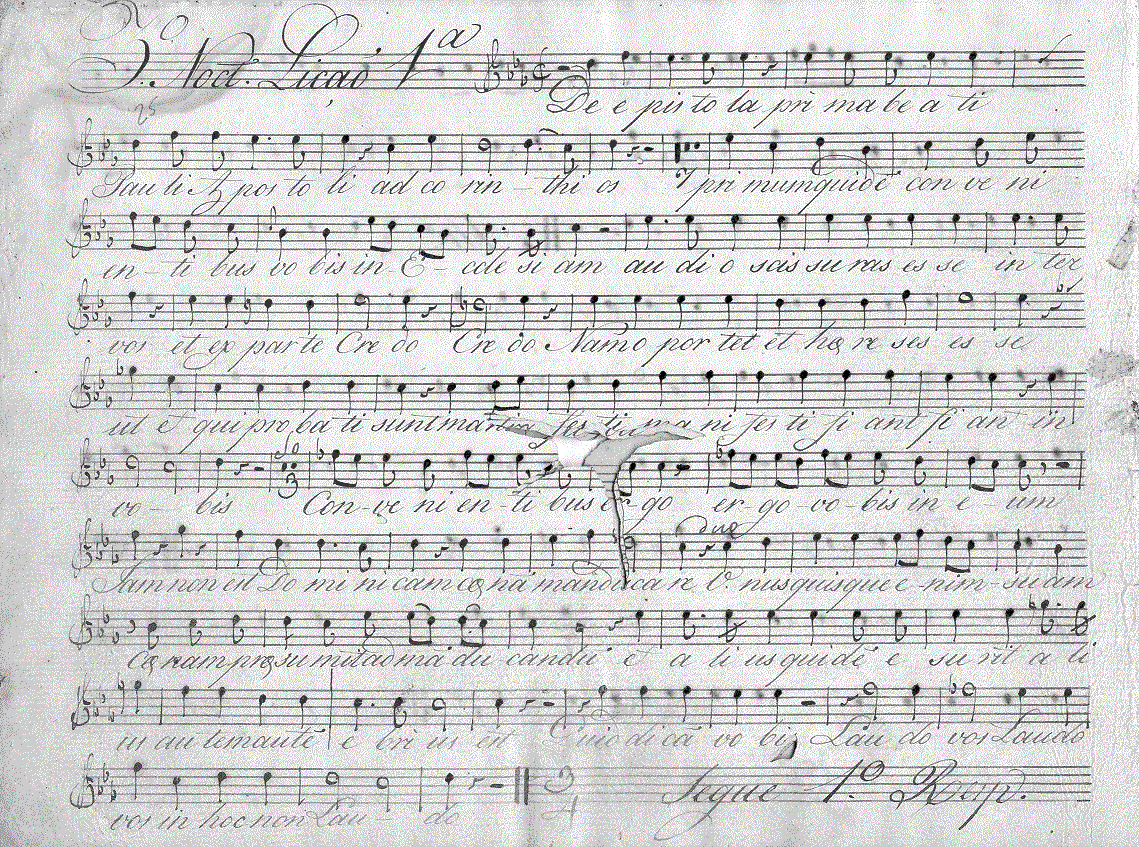 3º Noct. Licaõ 1ª
De e pis to la pri ma be a ti
Pau li A pos to li ad co rin - thi os Pri mum quidẽ con ve ni
en - ti bus vo bis in - E - cle si am au di o scis su ras es se in ter
vos et ex par te Cre do Cre do Nam o por tet et hæ re ses es se
ut et qui pro ba ti sunt ma ni fes ti fi ant fi ant in
vo - bis So Con - ve ni en - ti bus er - go er - go - vo - bis in e - um
Jam non est Do mi ni cam cæ na man du ca re duo U nus quis que e - nim - su am
Cæ nam præ su mit ad ma du - can dũ et a li us quidẽ e su rit a li
us au tem autẽ e bri us est Quid di cã vo bis Lau do vos Laudo
vos in hoc non Lau - do Segue 1º Resp.